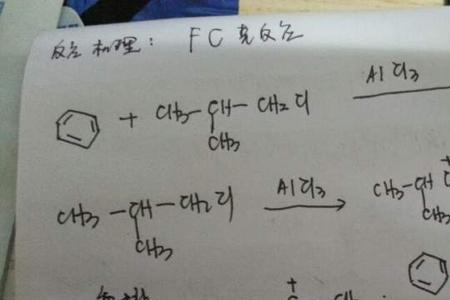 反应机理: FC 克反应
+ CH3-CH-CH2Cl AlCl3
CH3
CH3-CH-CH2Cl AlCl3 CH3-CH
CH3 CH3
+